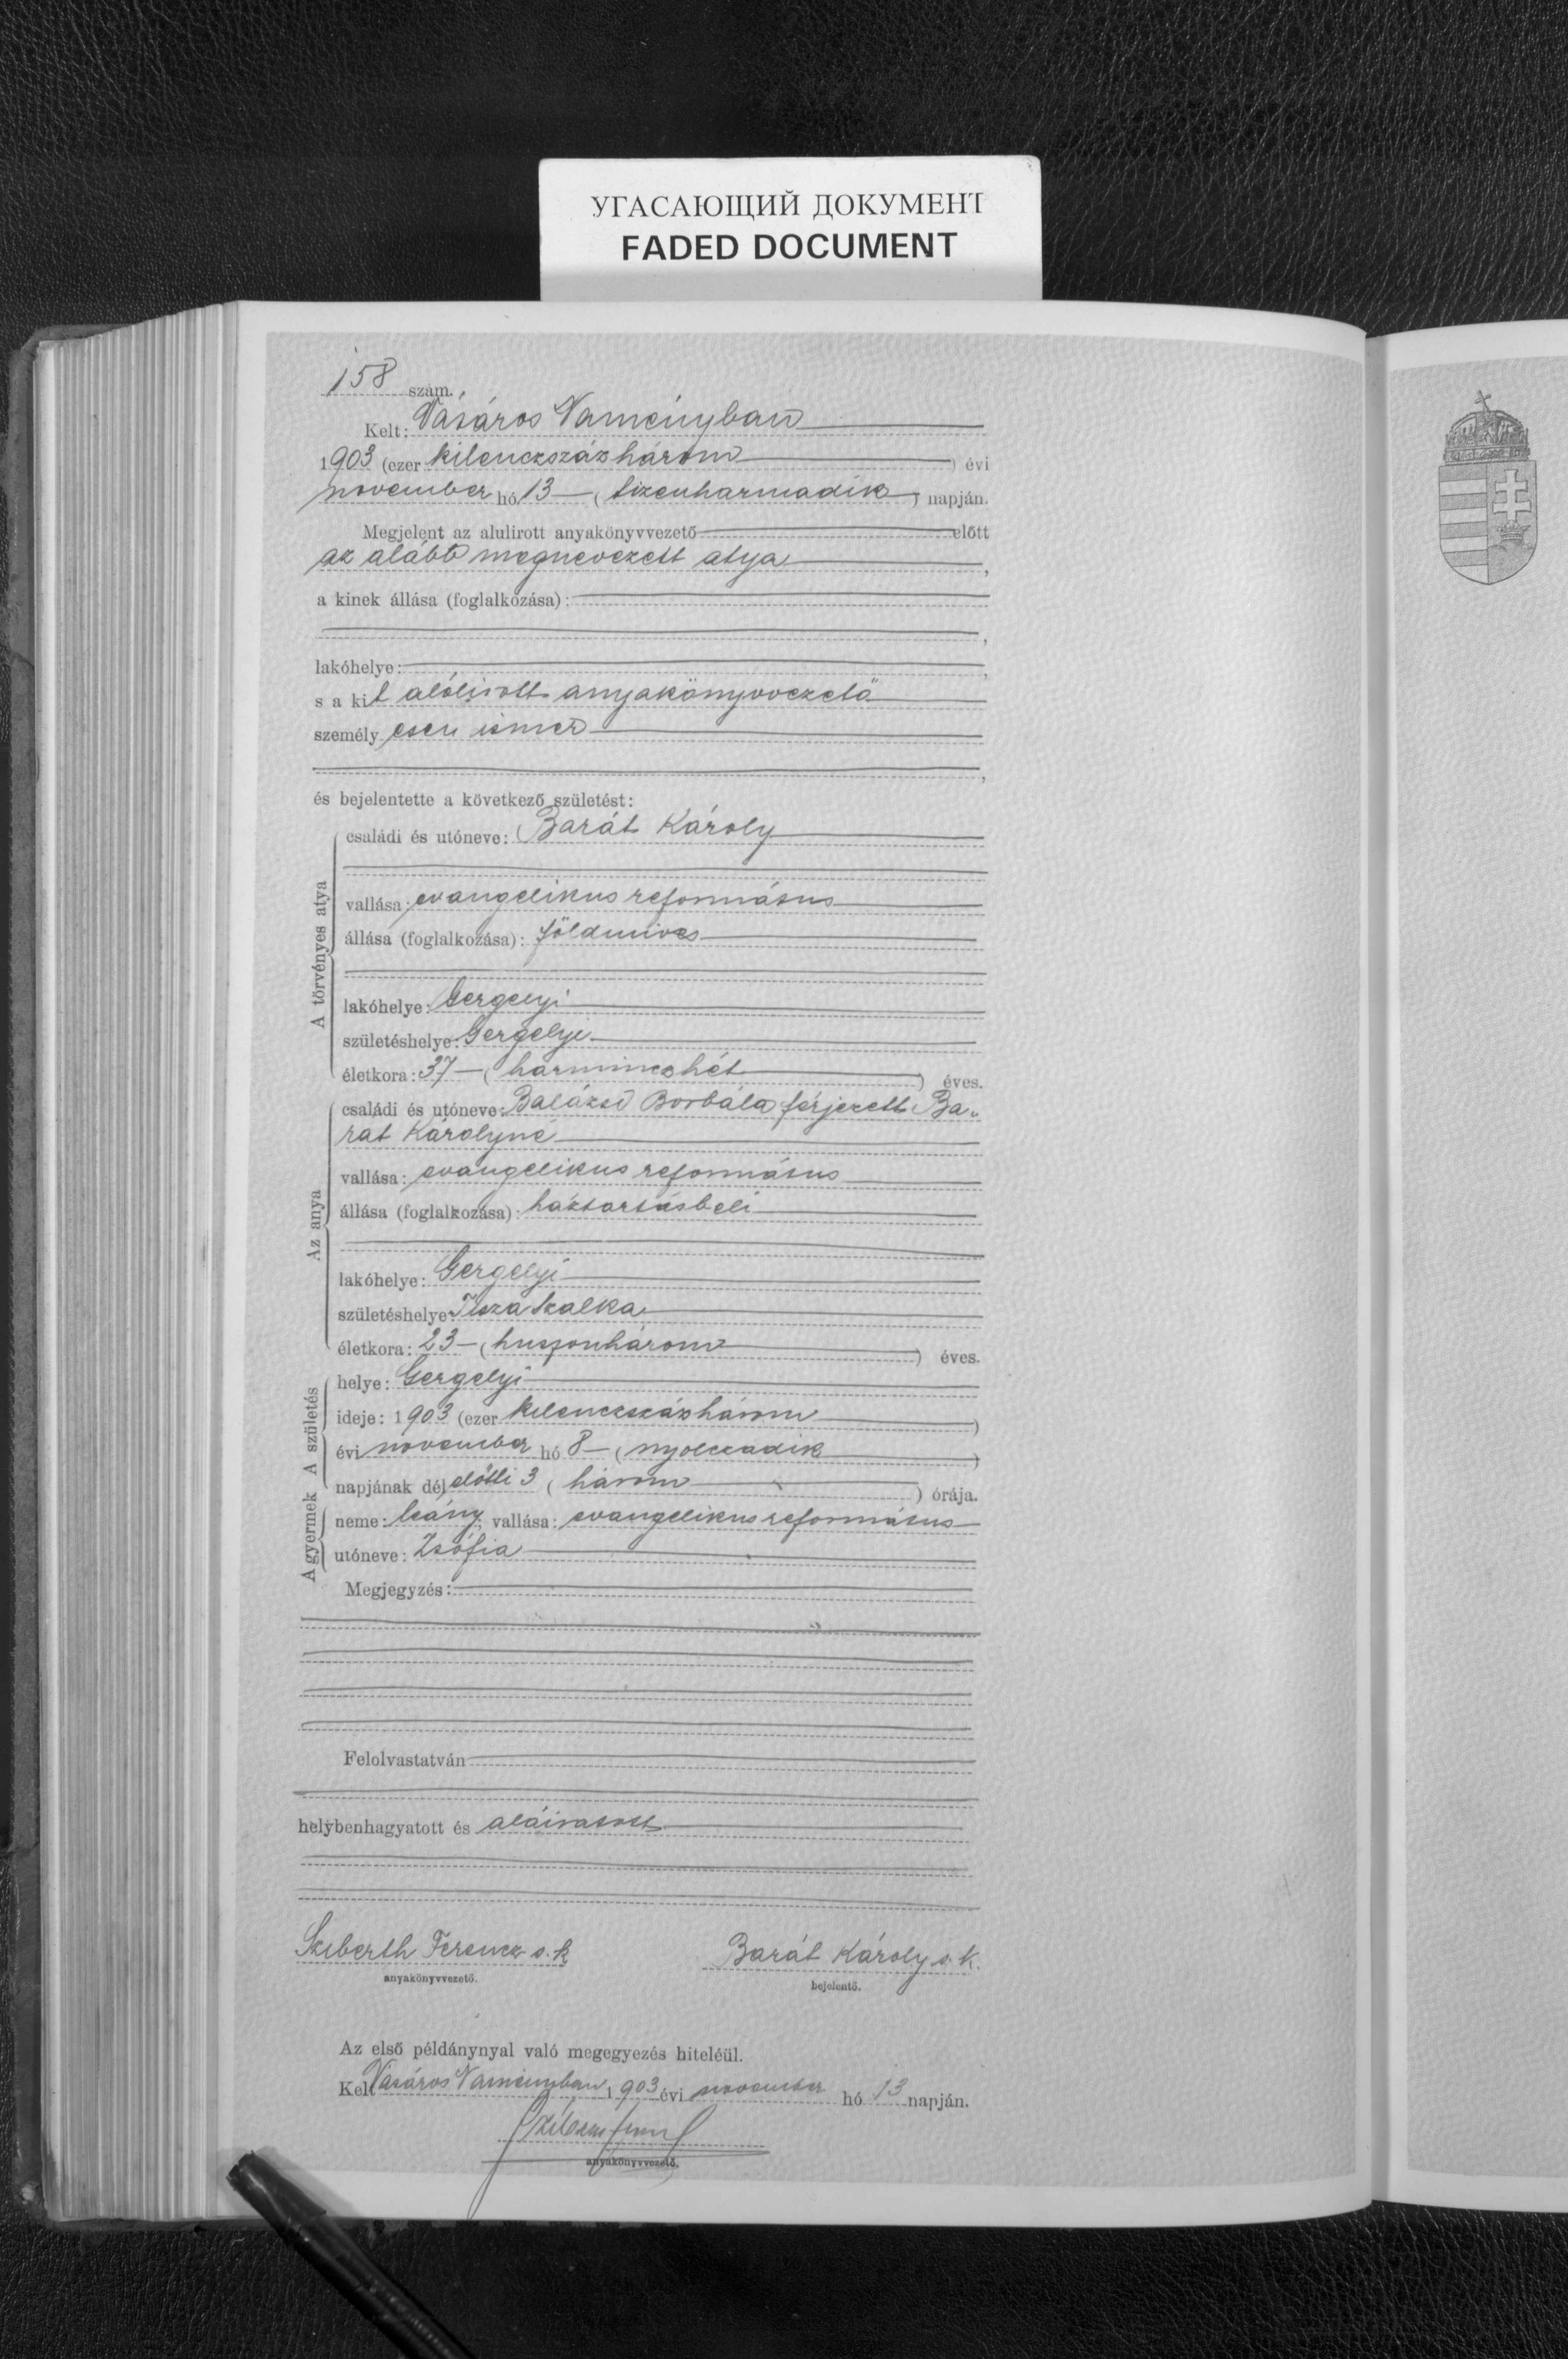 УГАСАЮЩИЙ ДОКУМЕНТ
FADED DOCUMENT
158 szám.
Kelt: Vásáros Naményban
1903 (ezer kilenczszázhárom) évi
november hó 13 (tizenharmadik) napján.
Megjelent az alulirott anyakönyvvezető előtt
az alább megnevezett atya,
a kinek állása (foglalkozása):
,
lakóhelye: ,
s a kit alólirott anyakönyvvezető
személyesen ismer
,
és bejelentette a következő születést:
A törvényes atya
családi és utóneve: Barát Károly
vallása: evangelikus református
állása (foglalkozása): földmives
lakóhelye: Gergelyi
születéshelye: Gergelyi
életkora: 37 (harminczhét) éves.
Az anya
családi és utóneve: Balázsi Borbála férjezett Ba„
rát Károlyné
vallása: evangelikus református
állása (foglalkozása): háztartásbeli
lakóhelye: Gergelyi
születéshelye: Tisza Szalka
életkora: 23 (huszonhárom) éves.
A születés
helye: Gergelyi
ideje: 1903 (ezer kilenczszázhárom)
évi november hó 8 (nyolczadik)
napjának délelőtti 3 (három) órája.
A gyermek
neme: leány, vallása: evangelikus református
utóneve: Zsófia
Megjegyzés:
Felolvastatván
helybenhagyatott és aláiratott
Sziberth Ferencz s. k
anyakönyvvezető.
Barát Károly s. k.
bejelentő.
Az első példánynyal való megegyezés hiteléül.
Kelt Vásáros Naményban, 1903 évi november hó 13 napján.
anyakönyvvezető.